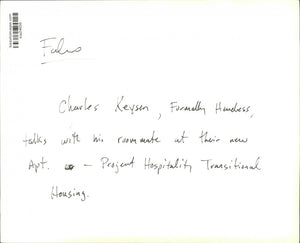 Charles Keysen, Formally Homeless,
talks with his roommate at their new
Apt. — Project Hospitality Transitional
Housing.